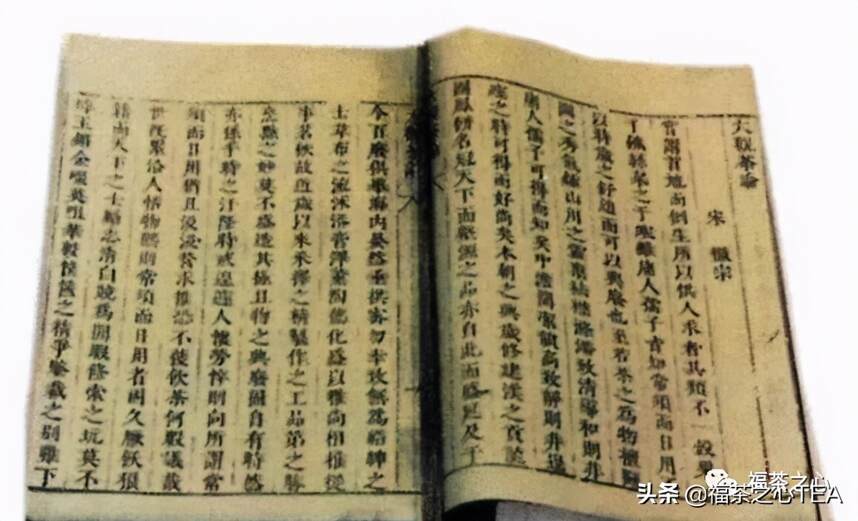 大觀茶論
宋 徽宗
嘗謂首地而倒生所以供人求者其類不一穀粟
于飢絲枲之于寒雖庸人孺子皆知常須而日用
以時歲之舒迫而可以興廢也至若茶之為物擅甌
閩之秀氣鍾山川之靈稟祛襟滌滯致清導和則非
庸人孺子可得而知矣中澹閒潔韻高致靜則非遑
遽之時可得而好尚矣本朝之興歲修建溪之貢龍
團鳳餅名冠天下而壑源之品亦自此而盛延及于
今百廢俱舉海內晏然垂拱密勿幸致無為縉紳之
士韋布之流沐浴膏澤薰陶德化盛以雅尚相推從
事茗飲故近歲以來采擇之精製作之工品第之勝
烹點之妙莫不盛造其極且物之興廢固自有時然
亦係乎時之汙隆時或遑遽人懷勞悴則向所謂常
須而日用猶且汲汲營求惟恐不獲飲茶何暇議哉
世既累洽人恬物熙則常須而日用者固久厭飫狼
籍而天下之士勵志清白競為閒暇修索之玩莫不
碎玉鏘金啜英咀華較筐篋之精爭鑒裁之別雖下
福茶之心
头条 @福茶之心TEA